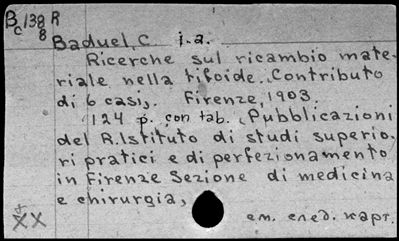 Bc 138 R
8
Baduel, C i.a.
Ricerche sul ricambio mate-
riale nella tifoide. Contributo
di 6 casi,. Firenze, 1903.
124 p. con tab. (Pubblicazioni
del R.Istituto di studi superio-
ri pratici e di perfezionamento
in Firenze Sezione di medicina
e chirurgia,
XX
ет. след. карт.